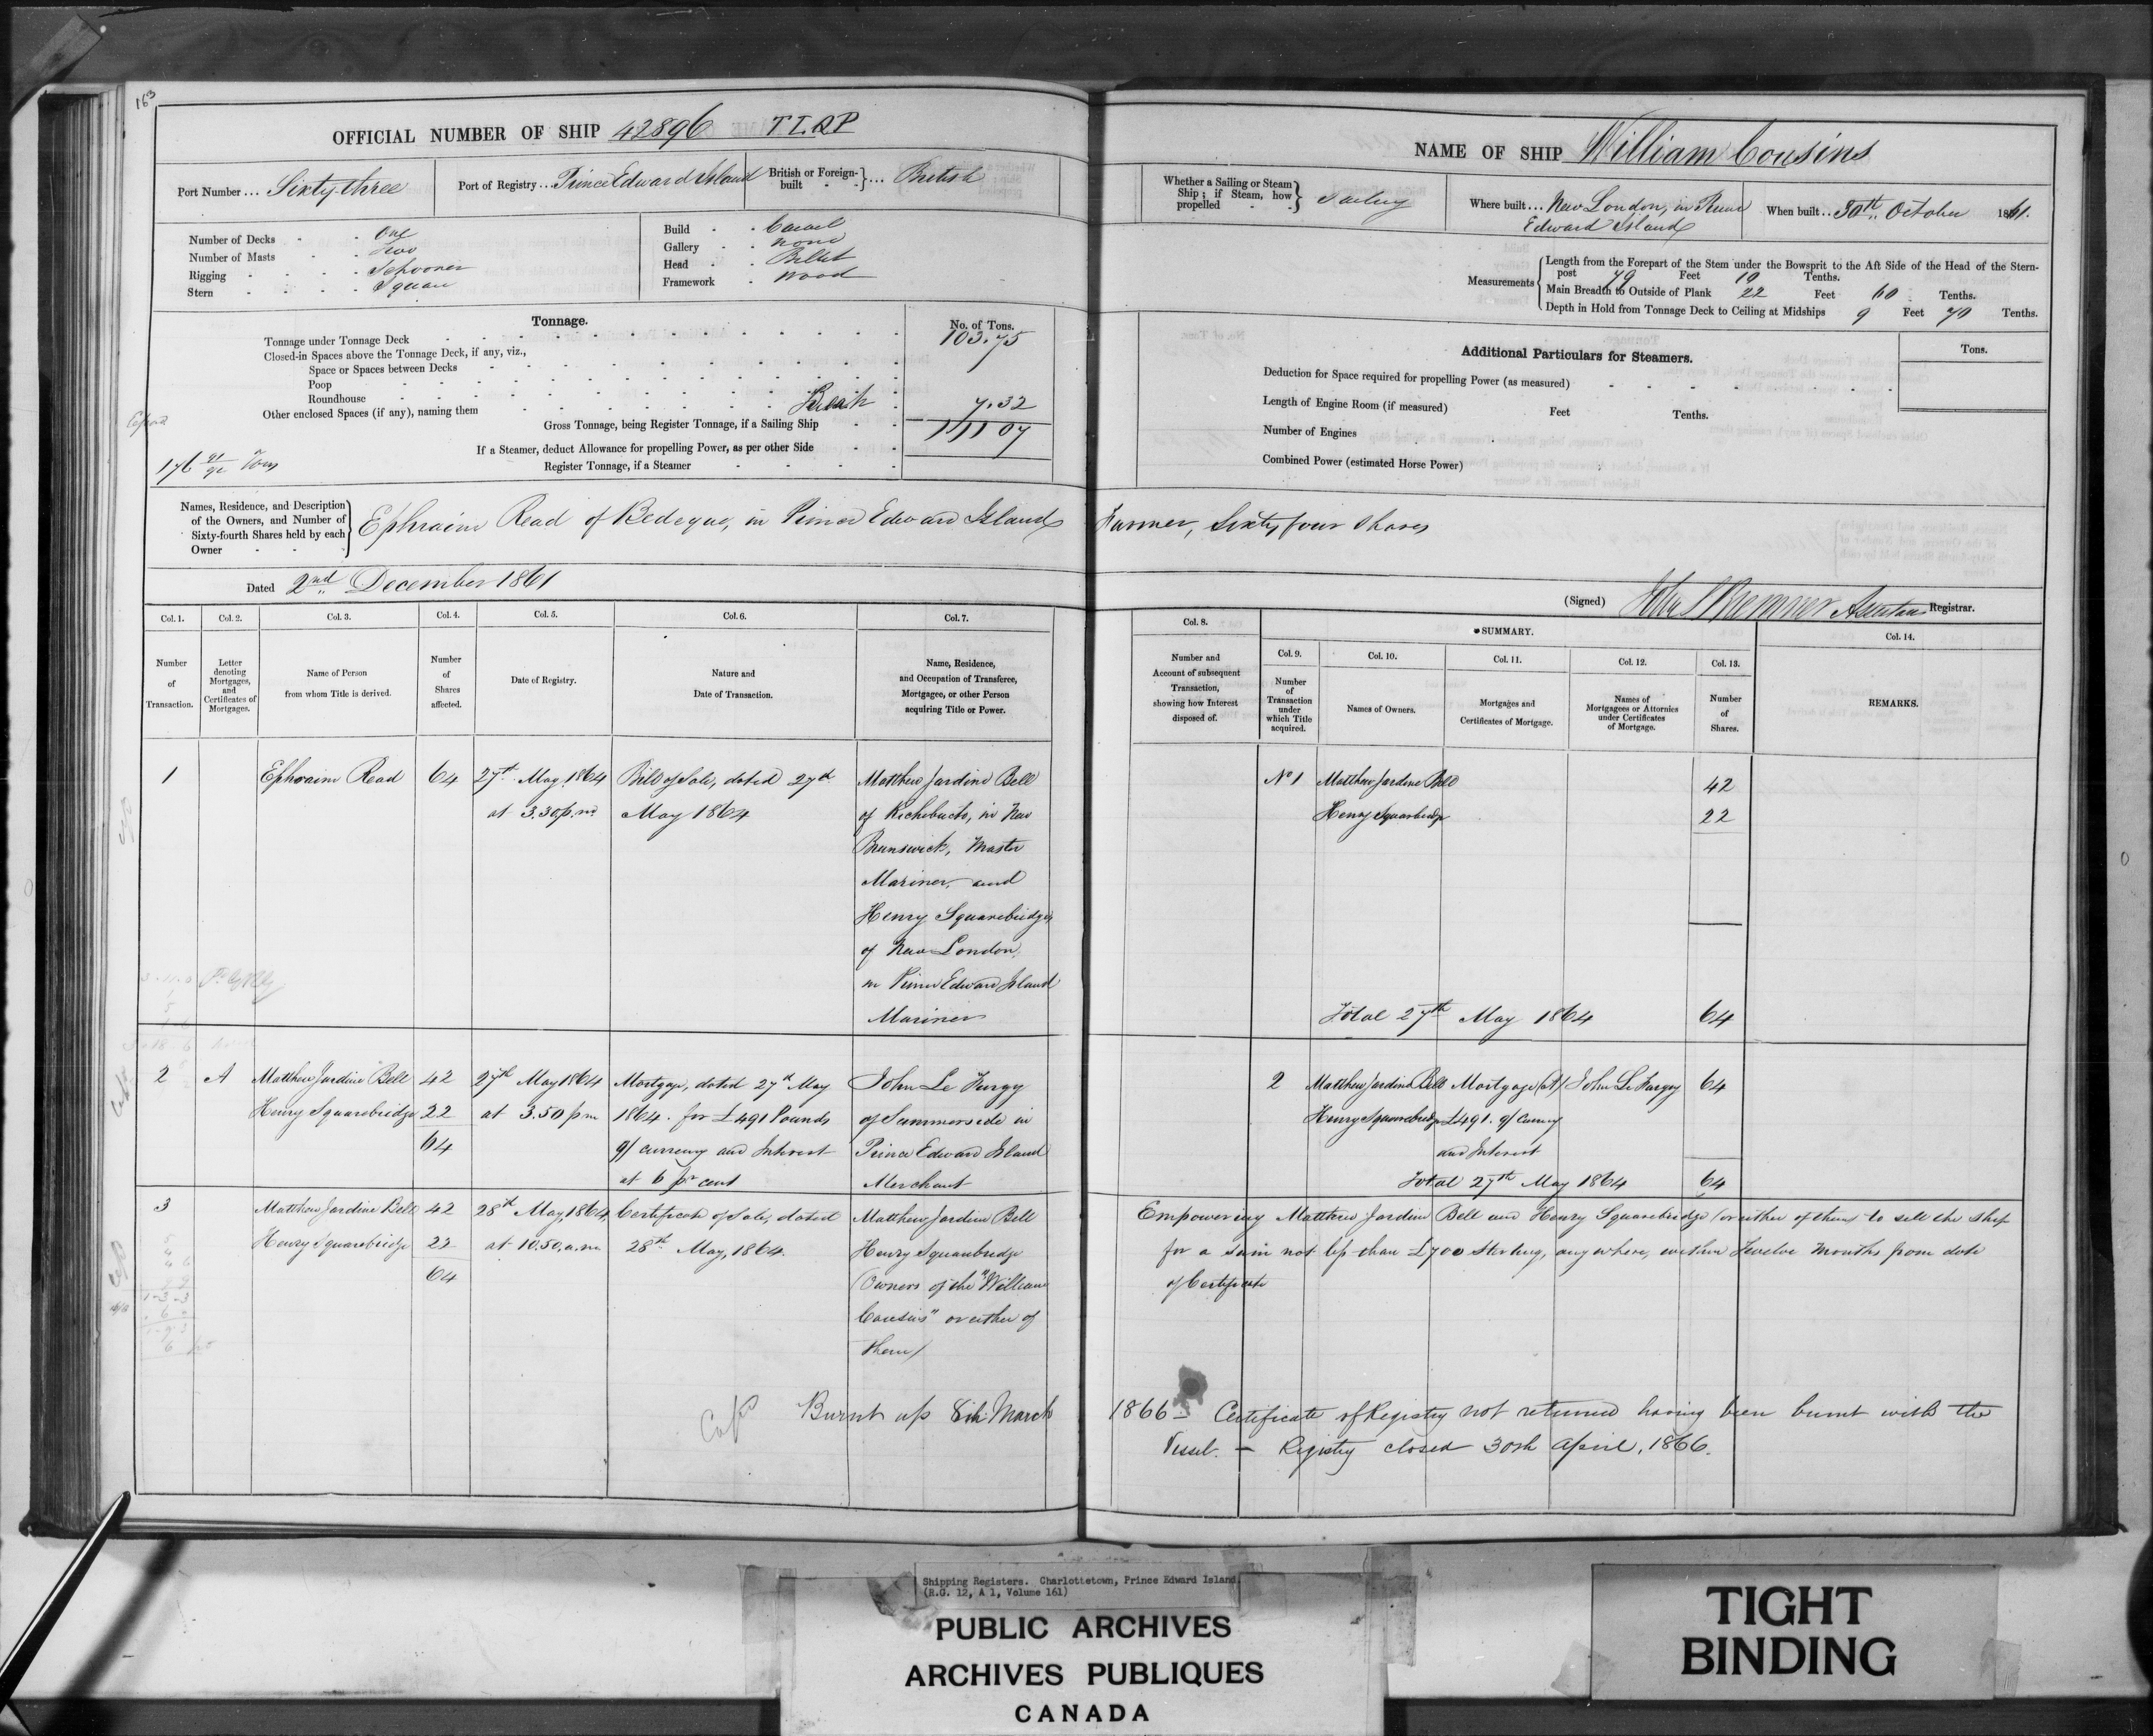 163
OFFICIAL NUMBER OF SHIP 42896 TLQP
Port Number ... Sixty three
Port of Registry ... Prince Edward Island
British or Foreign-built } ... British
Number of Decks - - One
Number of Masts - - Two
Rigging - - - Schooner
Stern - - - Square
Build - - Carvel
Gallery - - None
Head - - Billet
Framework - Wood
Tonnage.
No. of Tons.
Tonnage under Tonnage Deck 103.75
Closed-in Spaces above the Tonnage Deck, if any, viz.,
Space or Spaces between Decks
Poop
Roundhouse
Other enclosed Spaces (if any), naming them Break 7.32
Gross Tonnage, being Register Tonnage, if a Sailing Ship 111 07
If a Steamer, deduct Allowance for propelling Power, as per other Side
Register Tonnage, if a Steamer
176 Tons
Names, Residence, and Description of the Owners, and Number of Sixty-fourth Shares held by each Owner
Ephraim Read of Bedeque, in Prince Edward Island
Dated 2nd December 1861
Col. 1. Col. 2. Col. 3. Col. 4. Col. 5. Col. 6. Col. 7.
Number of Transaction.
Letter denoting Mortgages, and Certificates of Mortgages.
Name of Person from whom Title is derived.
Number of Shares affected.
Date of Registry.
Nature and Date of Transaction.
Name, Residence, and Occupation of Transferee, Mortgagee, or other Person acquiring Title or Power.
1 Ephraim Read 64 27th May 1864 Bill of Sale, dated 27th Matthew Jardine Bell
at 3.30 p.m. May 1864 of Richibucto, in New
Brunswick, Master
Mariner, and
Henry Squarebridge,
of New London,
in Prince Edward Island
Mariner
2 A Matthew Jardine Bell 42 27th May 1864 Mortgage, dated 27th May John Le Furgy
Henry Squarebridge 22 at 3.50 p.m 1864 for £491 Pounds of Summerside in
64 of currency and Interest Prince Edward Island
at 6 pr cent Merchant
3 Matthew Jardine Bell 42 28th May, 1864, Certificate of Sale, dated Matthew Jardine Bell
Henry Squarebridge 22 at 10.50. a.m. 28th May, 1864. Henry Squarebridge
64 (Owners of the "William
Cousins" or either of
them)
Burnt up 8th March
NAME OF SHIP William Cousins
Whether a Sailing or Steam Ship; if Steam, how propelled } Sailing
Where built ... New London, in Prince
Edward Island
When built ... 30th October 1861.
Measurements
Length from the Forepart of the Stem under the Bowsprit to the Aft Side of the Head of the Stern-
post 79 Feet 10 Tenths.
Main Breadth to Outside of Plank 22 Feet 60 Tenths.
Depth in Hold from Tonnage Deck to Ceiling at Midships 9 Feet 70 Tenths.
Additional Particulars for Steamers.
Tons.
Deduction for Space required for propelling Power (as measured)
Length of Engine Room (if measured) Feet Tenths.
Number of Engines
Combined Power (estimated Horse Power)
Farmer, Sixty four Shares
(Signed) John S Bremner Assistant Registrar.
Col. 8. SUMMARY. Col. 14.
Col. 9. Col. 10. Col. 11. Col. 12. Col. 13.
Number and Account of subsequent Transaction, showing how Interest disposed of.
Number of Transaction under which Title acquired.
Names of Owners.
Mortgages and Certificates of Mortgage.
Names of Mortgagees or Attornies under Certificates of Mortgage.
Number of Shares.
REMARKS.
No 1 Matthew Jardine Bell 42
Henry Squarebridge 22
Total 27th May 1864 64
2 Matthew Jardine Bell Mortgage (A) John Le Furgy 64
Henry Squarebridge £491. of Curency
and Interest
Total 27th May 1864 64
Empowering Matthew Jardine Bell and Henry Squarebridge (or either of them) to sell the Ship
for a sum not less than £700 Sterling, anywhere, within Twelve Months from date
of Certificate
1866 - Certificate of Registry not returned having been burnt with the
Vessel. - Registry closed 30th April, 1866.
Shipping Registers. Charlottetown, Prince Edward Island.
(R.G. 12, A 1, Volume 161)
PUBLIC ARCHIVES
ARCHIVES PUBLIQUES
CANADA
TIGHT
BINDING